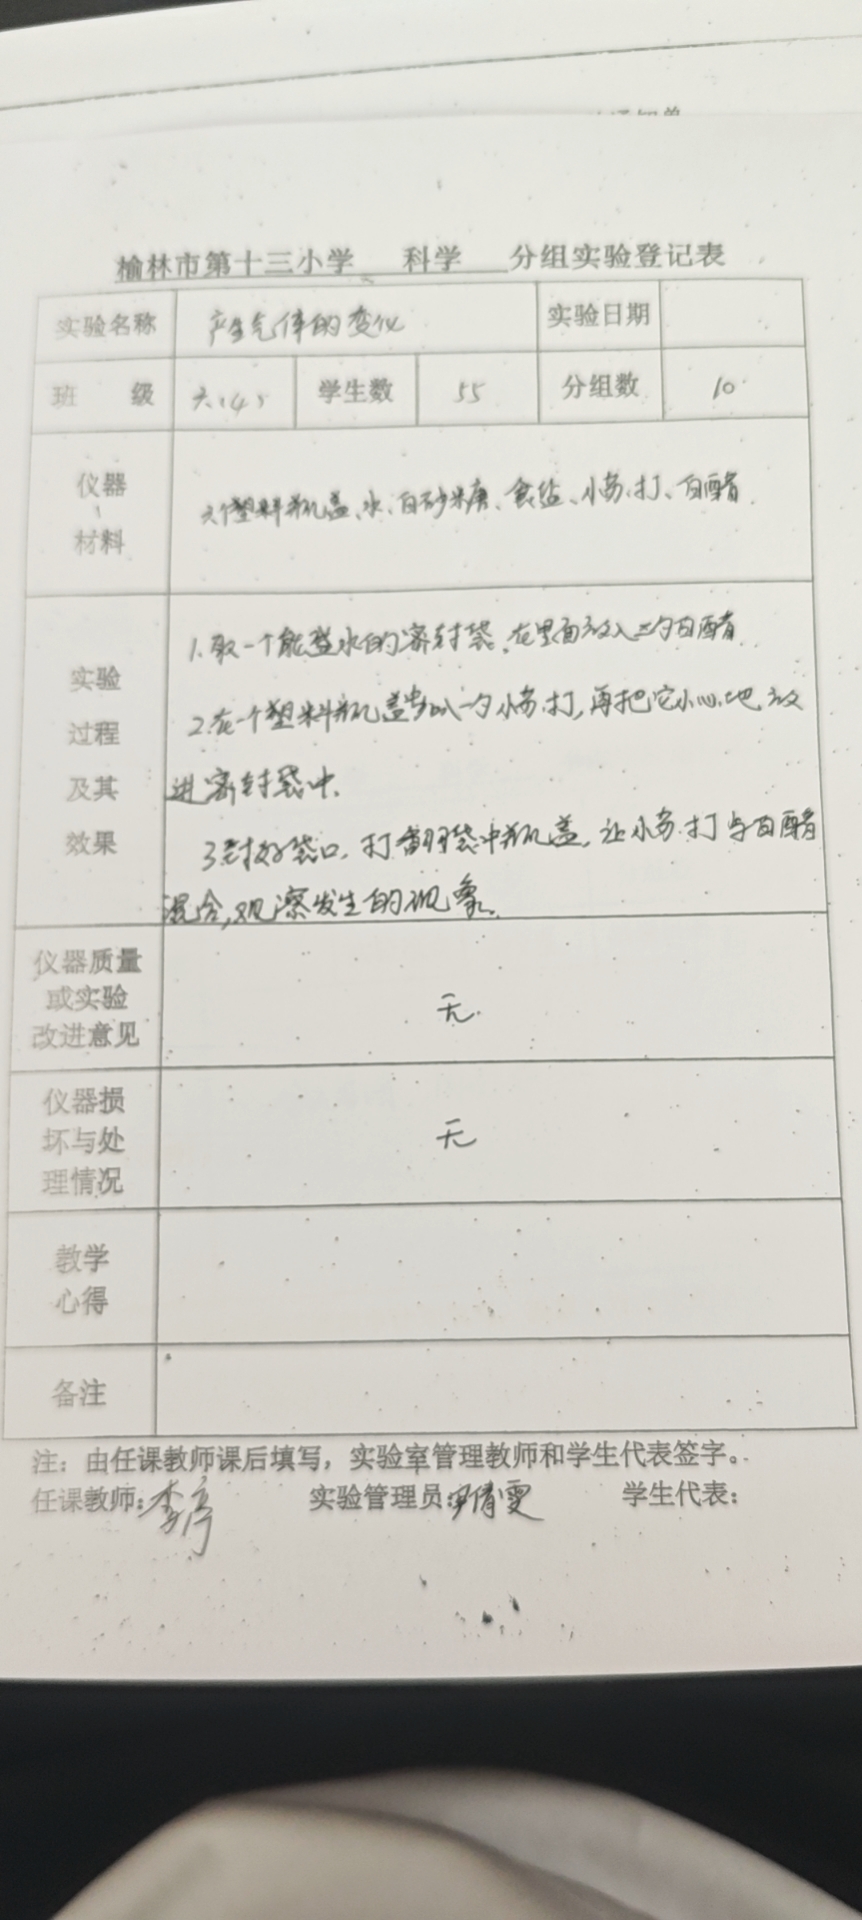 榆林市第十三小学 科学 分组实验登记表
实验名称 产生气体的变化 实验日期
班 级 六(4) 学生数 55 分组数 10
仪器、材料 六个塑料瓶盖、水、白砂糖、食盐、小苏打、白醋
实验过程及其效果
1.取一个能盛水的密封袋,在里面放入三勺白醋
2.在一个塑料瓶盖中放入一勺小苏打,再把它小心地放
进密封袋中.
3.封好袋口,打翻袋中瓶盖,让小苏打与白醋
混合,观察发生的现象.
仪器质量或实验改进意见 无.
仪器损坏与处理情况 无
教学心得
备注
注:由任课教师课后填写,实验室管理教师和学生代表签字。
任课教师:李 实验管理员:倩雯 学生代表: